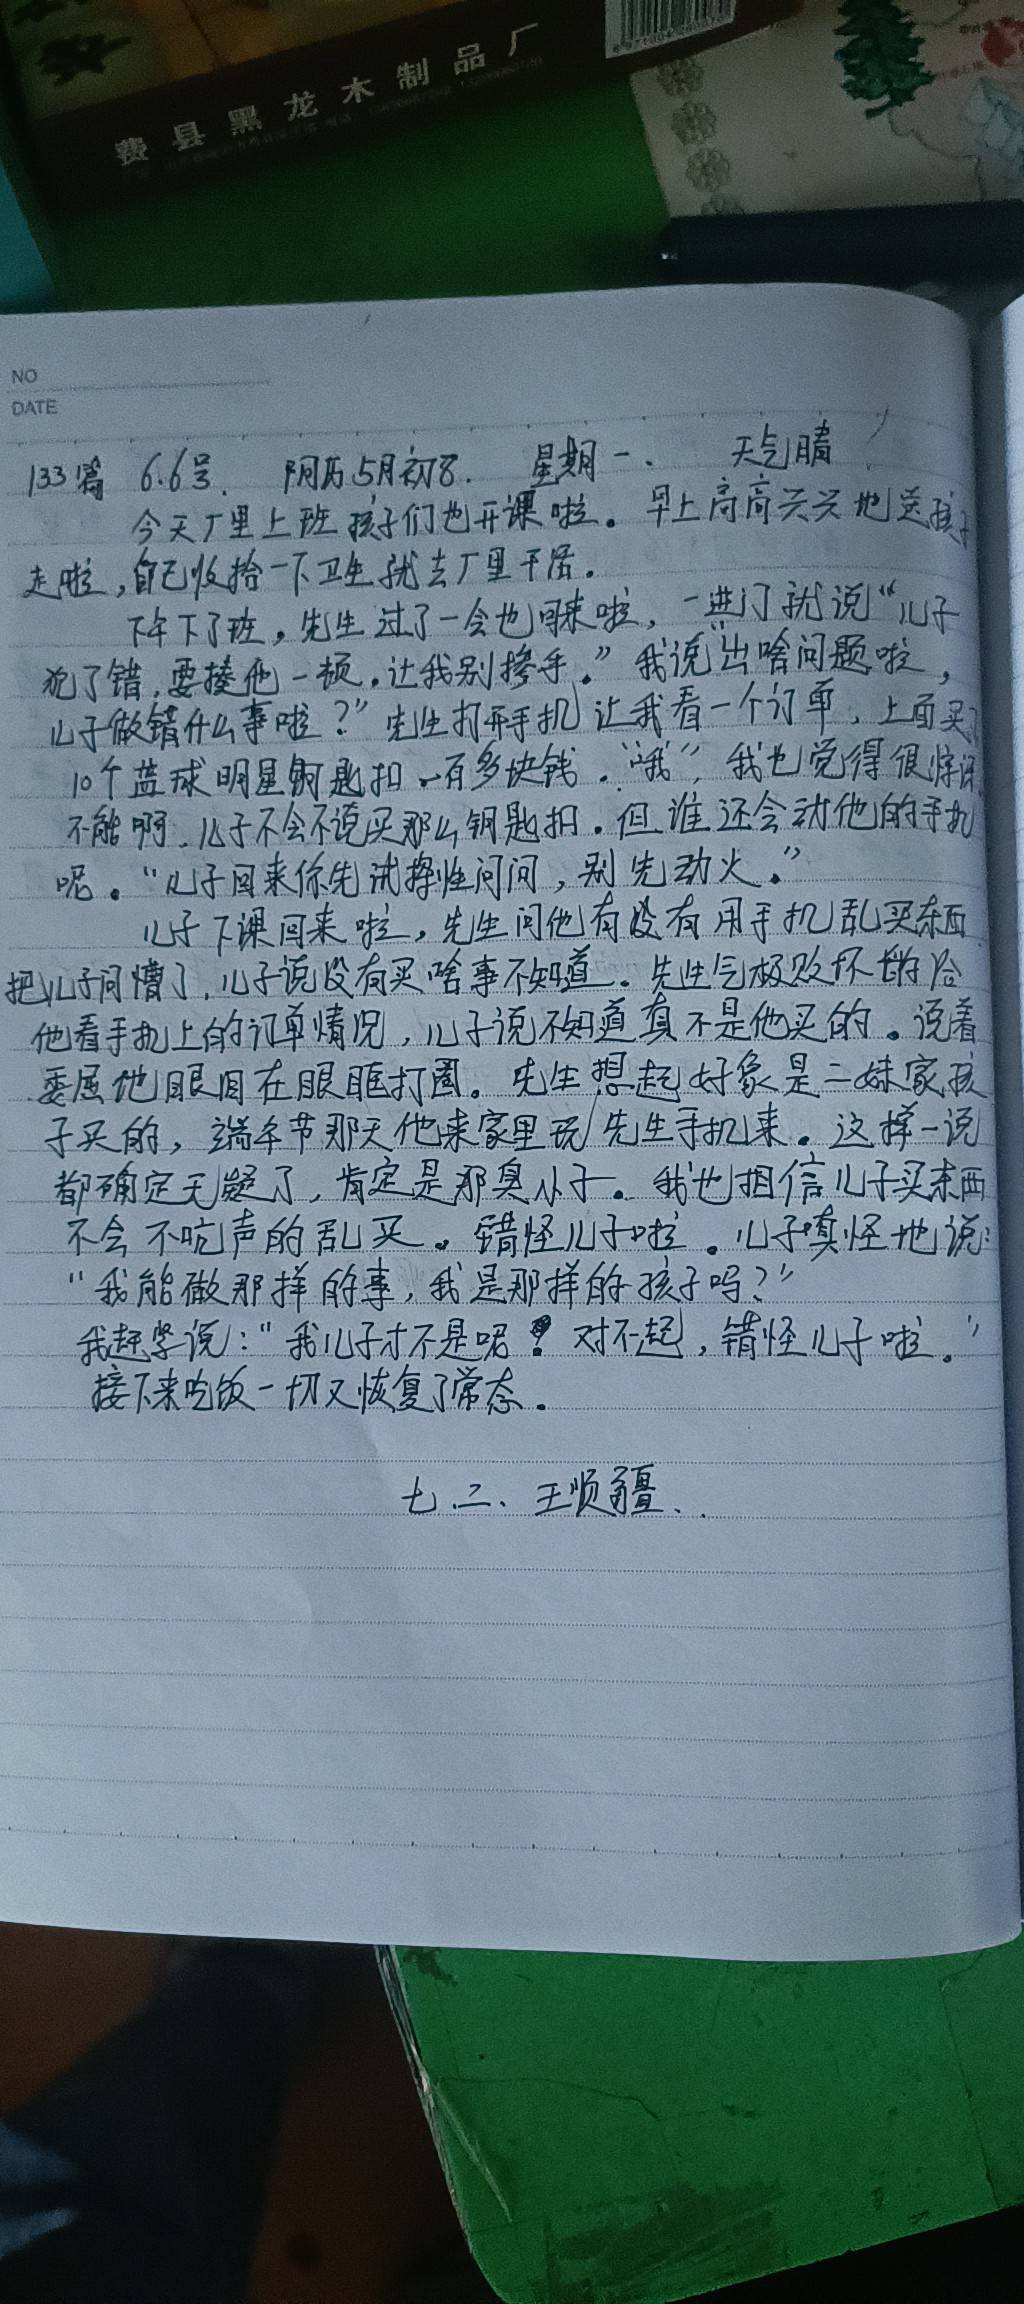 费县黑龙木制品厂
NO
DATE
133篇 6.6号. 阴历5月初8. 星期一. 天气晴
今天厂里上班孩子们也开课啦。早上高高兴兴地送孩子
走啦，自己收拾一下卫生就去厂里干活.
下午下了班，先生过了一会也回来啦，一进门就说“儿子
犯了错，要揍他一顿.让我别掺手.”我说“出啥问题啦，
儿子做错什么事啦？”先生打开手机让我看一个订单，上面买了
10个蓝球明星钥匙扣.一百多块钱.“哦”，我也觉得很惊讶
不能啊.儿子不会不说买那么钥匙扣.但谁还会动他的手机
呢。“儿子回来你先试探性问问，别先动火。”
儿子下课回来啦，先生问他有没有用手机乱买东西
把儿子问懵了，儿子说没有买啥事不知道。先生气极败坏的给
他看手机上的订单情况，儿子说不知道真不是他买的。说着
委屈地眼泪在眼眶打圈。先生想起好象是二妹家孩
子买的，端午节那天他来家里玩先生手机来。这样一说
都确定无疑了，肯定是那臭小子。我也相信儿子买东西
不会不吭声的乱买。错怪儿子啦.儿子嗔怪地说:
“我能做那样的事，我是那样的孩子吗？”
我赶紧说：“我儿子才不是呢！对不起，错怪儿子啦。”
接下来吃饭一切又恢复了常态.
七.二、王顺疆..